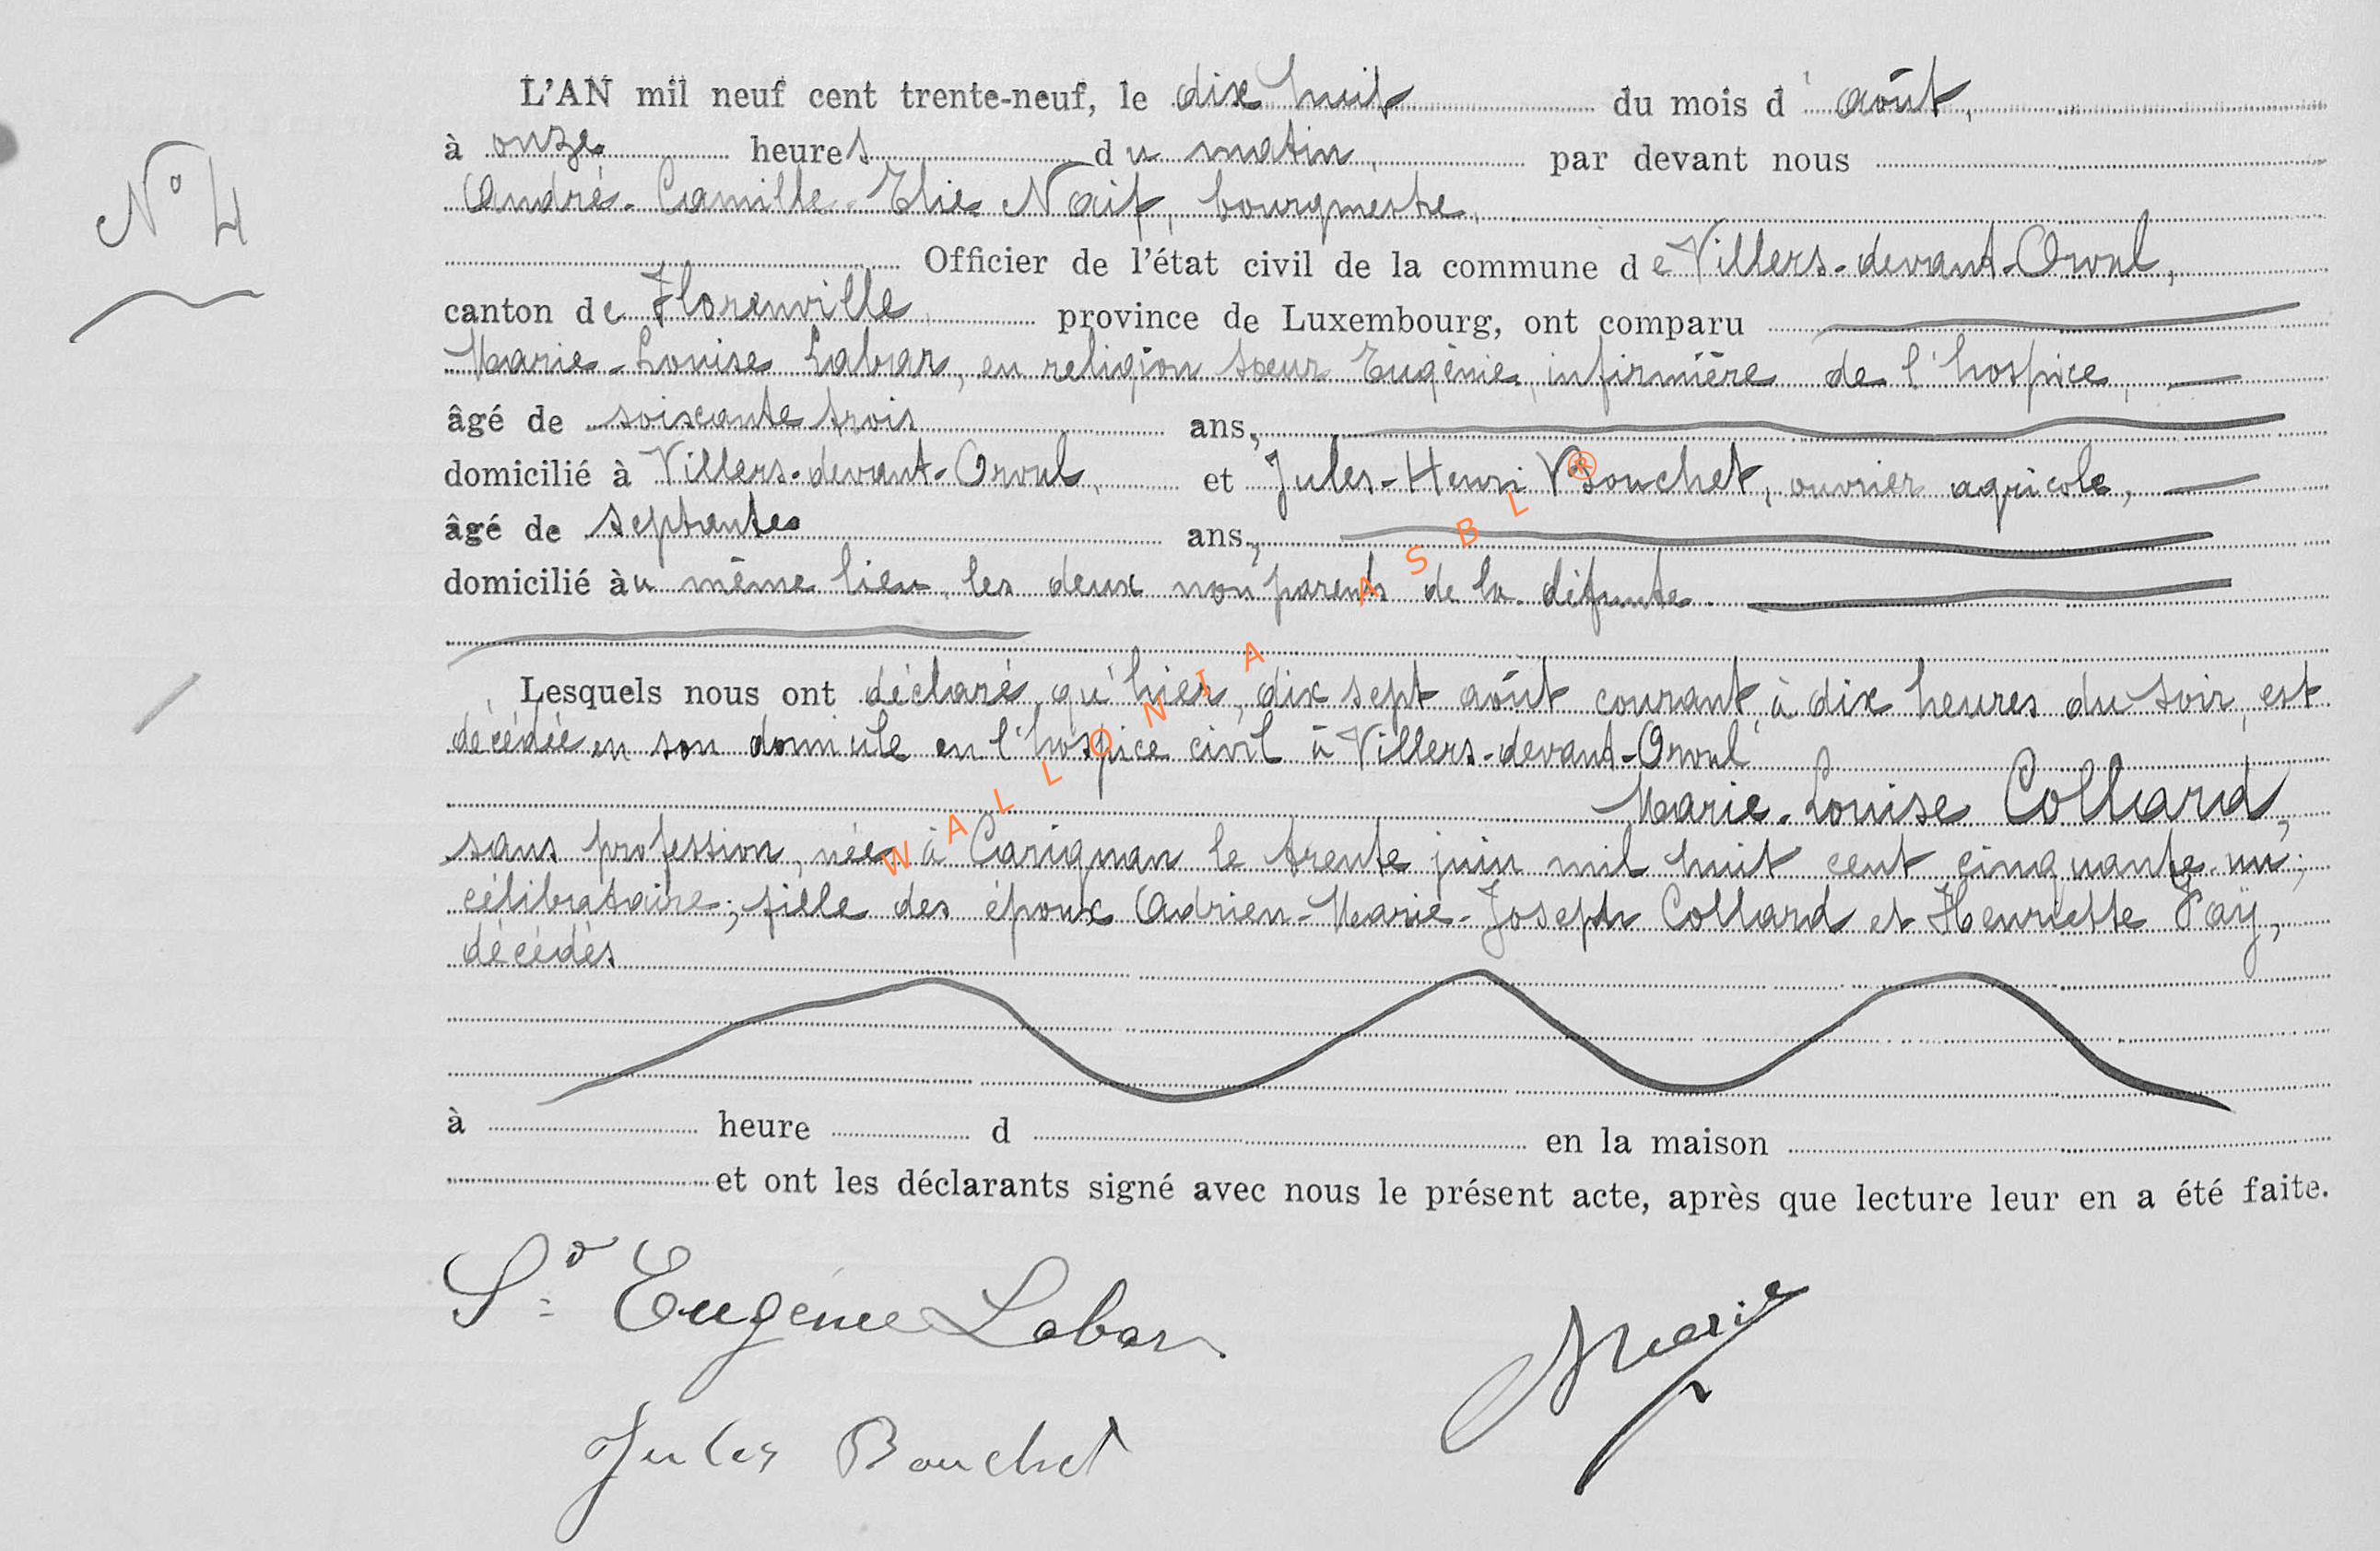 L'AN mil neuf cent trente-neuf, le dix huit du mois d' août,
N° 4
à onze heures du matin, par devant nous
André-Camille-Elie Naif, bourgmestre,
Officier de l'état civil de la commune de Villers-devant-Orval,
canton de Florenville province de Luxembourg, ont comparu
Marie-Louise Labar, en religion sœur Eugénie, infirmière de l'hospice,
âgé de soixante trois ans,
domicilié à Villers-devant-Orval, et Jules-Henri Bouchet, ouvrier agricole,
âgé de septante ans,
domicilié au même lieu, les deux non parents de la défunte.
Lesquels nous ont déclaré qu'hier, dix sept août courant, à dix heures du soir, est
décédée en son domicile en l'hospice civil à Villers-devant-Orval
Marie-Louise Collard,
sans profession, née à Carignan le trente juin mil huit cent cinquante-un;
célibataire; fille des époux Adrien-Marie-Joseph Collard et Henriette Faÿ,
décédés
à heure d en la maison
et ont les déclarants signé avec nous le présent acte, après que lecture leur en a été faite.
Sr Eugénie Labar
Jules Bouchet
WALLONIA ASBL ®